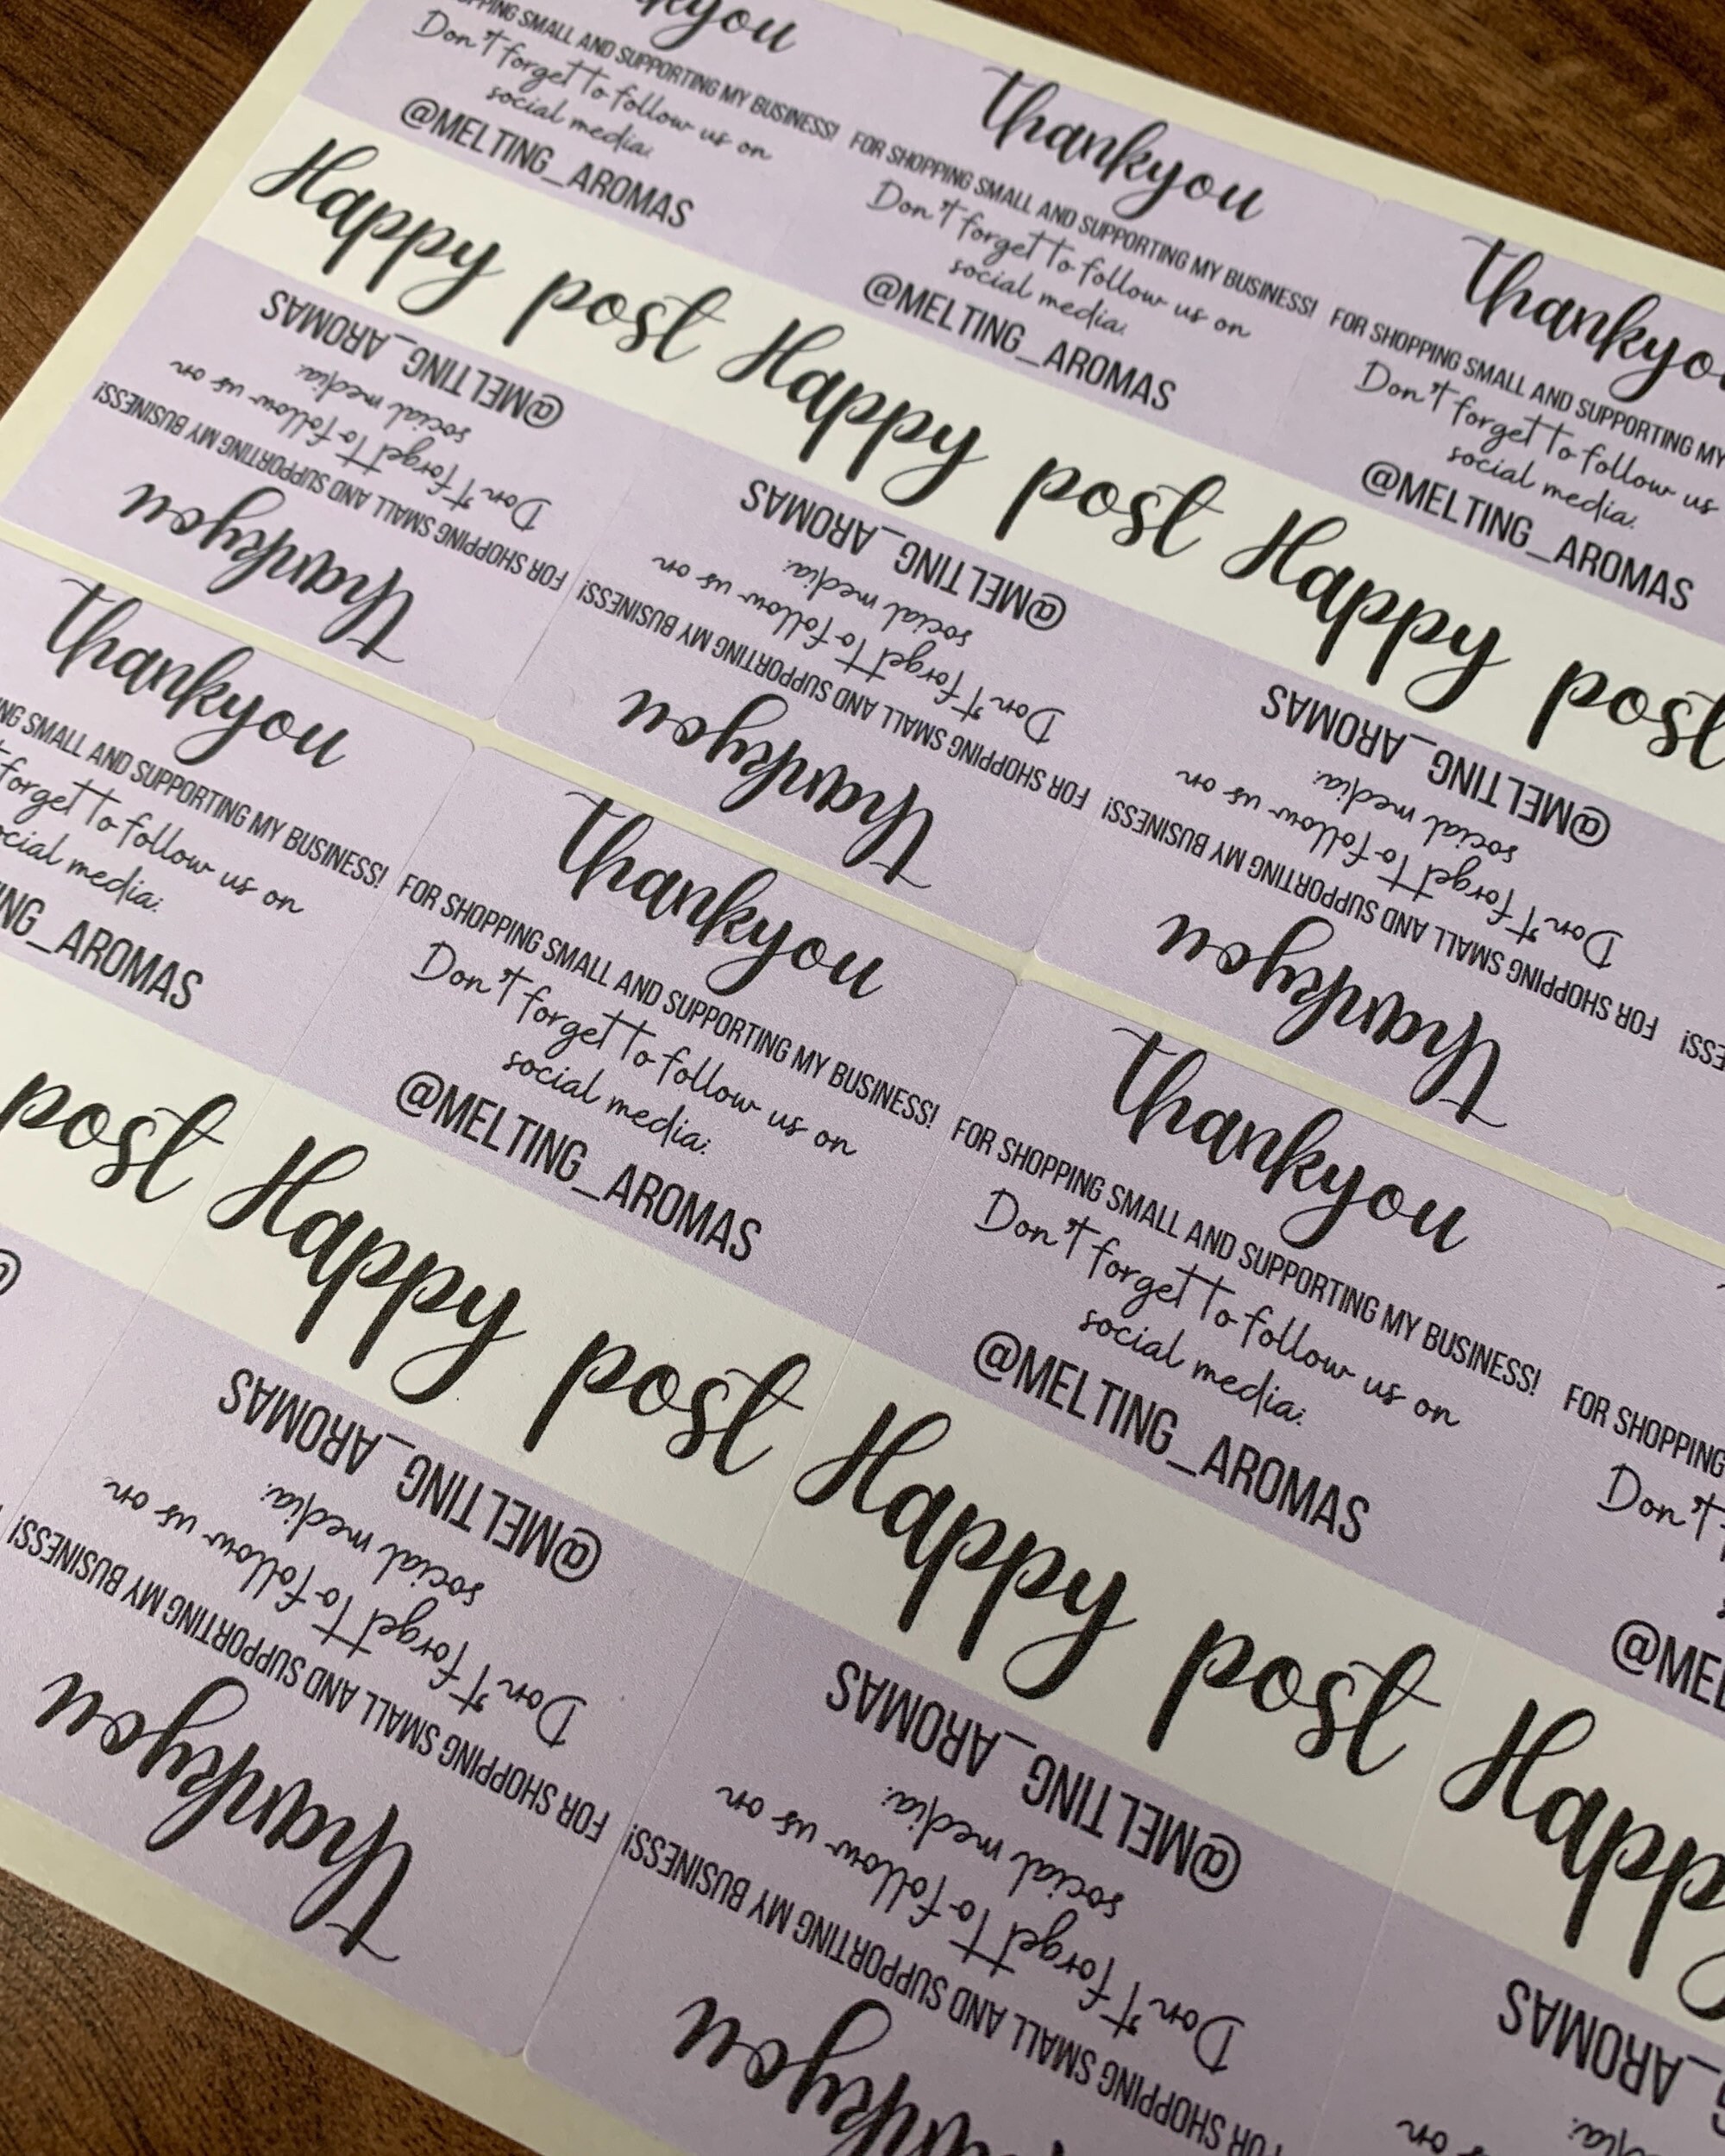 SMALL AND SUPPORTING MY BUSINESS!
Don't forget to follow us on
social media:
@MELTING_AROMAS
Happy post
@MELTING_AROMAS
social media:
Don't forget to follow us on
FOR SHOPPING SMALL AND SUPPORTING MY BUSINESS!
thankyou
thankyou
FOR SHOPPING SMALL AND SUPPORTING MY BUSINESS!
Don't forget to follow us on
social media:
@MELTING_AROMAS
Happy post
@MELTING_AROMAS
social media:
Don't forget to follow us on
FOR SHOPPING SMALL AND SUPPORTING MY BUSINESS!
thankyou
FOR SHOPPING SMALL AND SUPPORTING MY
Don't forget to follow us
social media:
@MELTING_AROMAS
Happy post
@MELTING_AROMAS
social media:
Don't forget to follow us on
FOR SHOPPING SMALL AND SUPPORTING MY BUSINESS!
thankyou
thankyou
SMALL AND SUPPORTING MY BUSINESS!
forget to follow us on
media:
post
thankyou
FOR SHOPPING SMALL AND SUPPORTING MY BUSINESS!
Don't forget to follow us on
social media:
@MELTING_AROMAS
Happy post
@MELTING_AROMAS
social media:
Don't forget to follow us on
FOR SHOPPING SMALL AND SUPPORTING MY BUSINESS!
thankyou
thankyou
FOR SHOPPING SMALL AND SUPPORTING MY BUSINESS!
Don't forget to follow us on
social media:
@MELTING_AROMAS
Happy post
@MELTING_AROMAS
social media:
Don't forget to follow us on
FOR SHOPPING SMALL AND SUPPORTING MY BUSINESS!
FOR SHOPPING
Don't